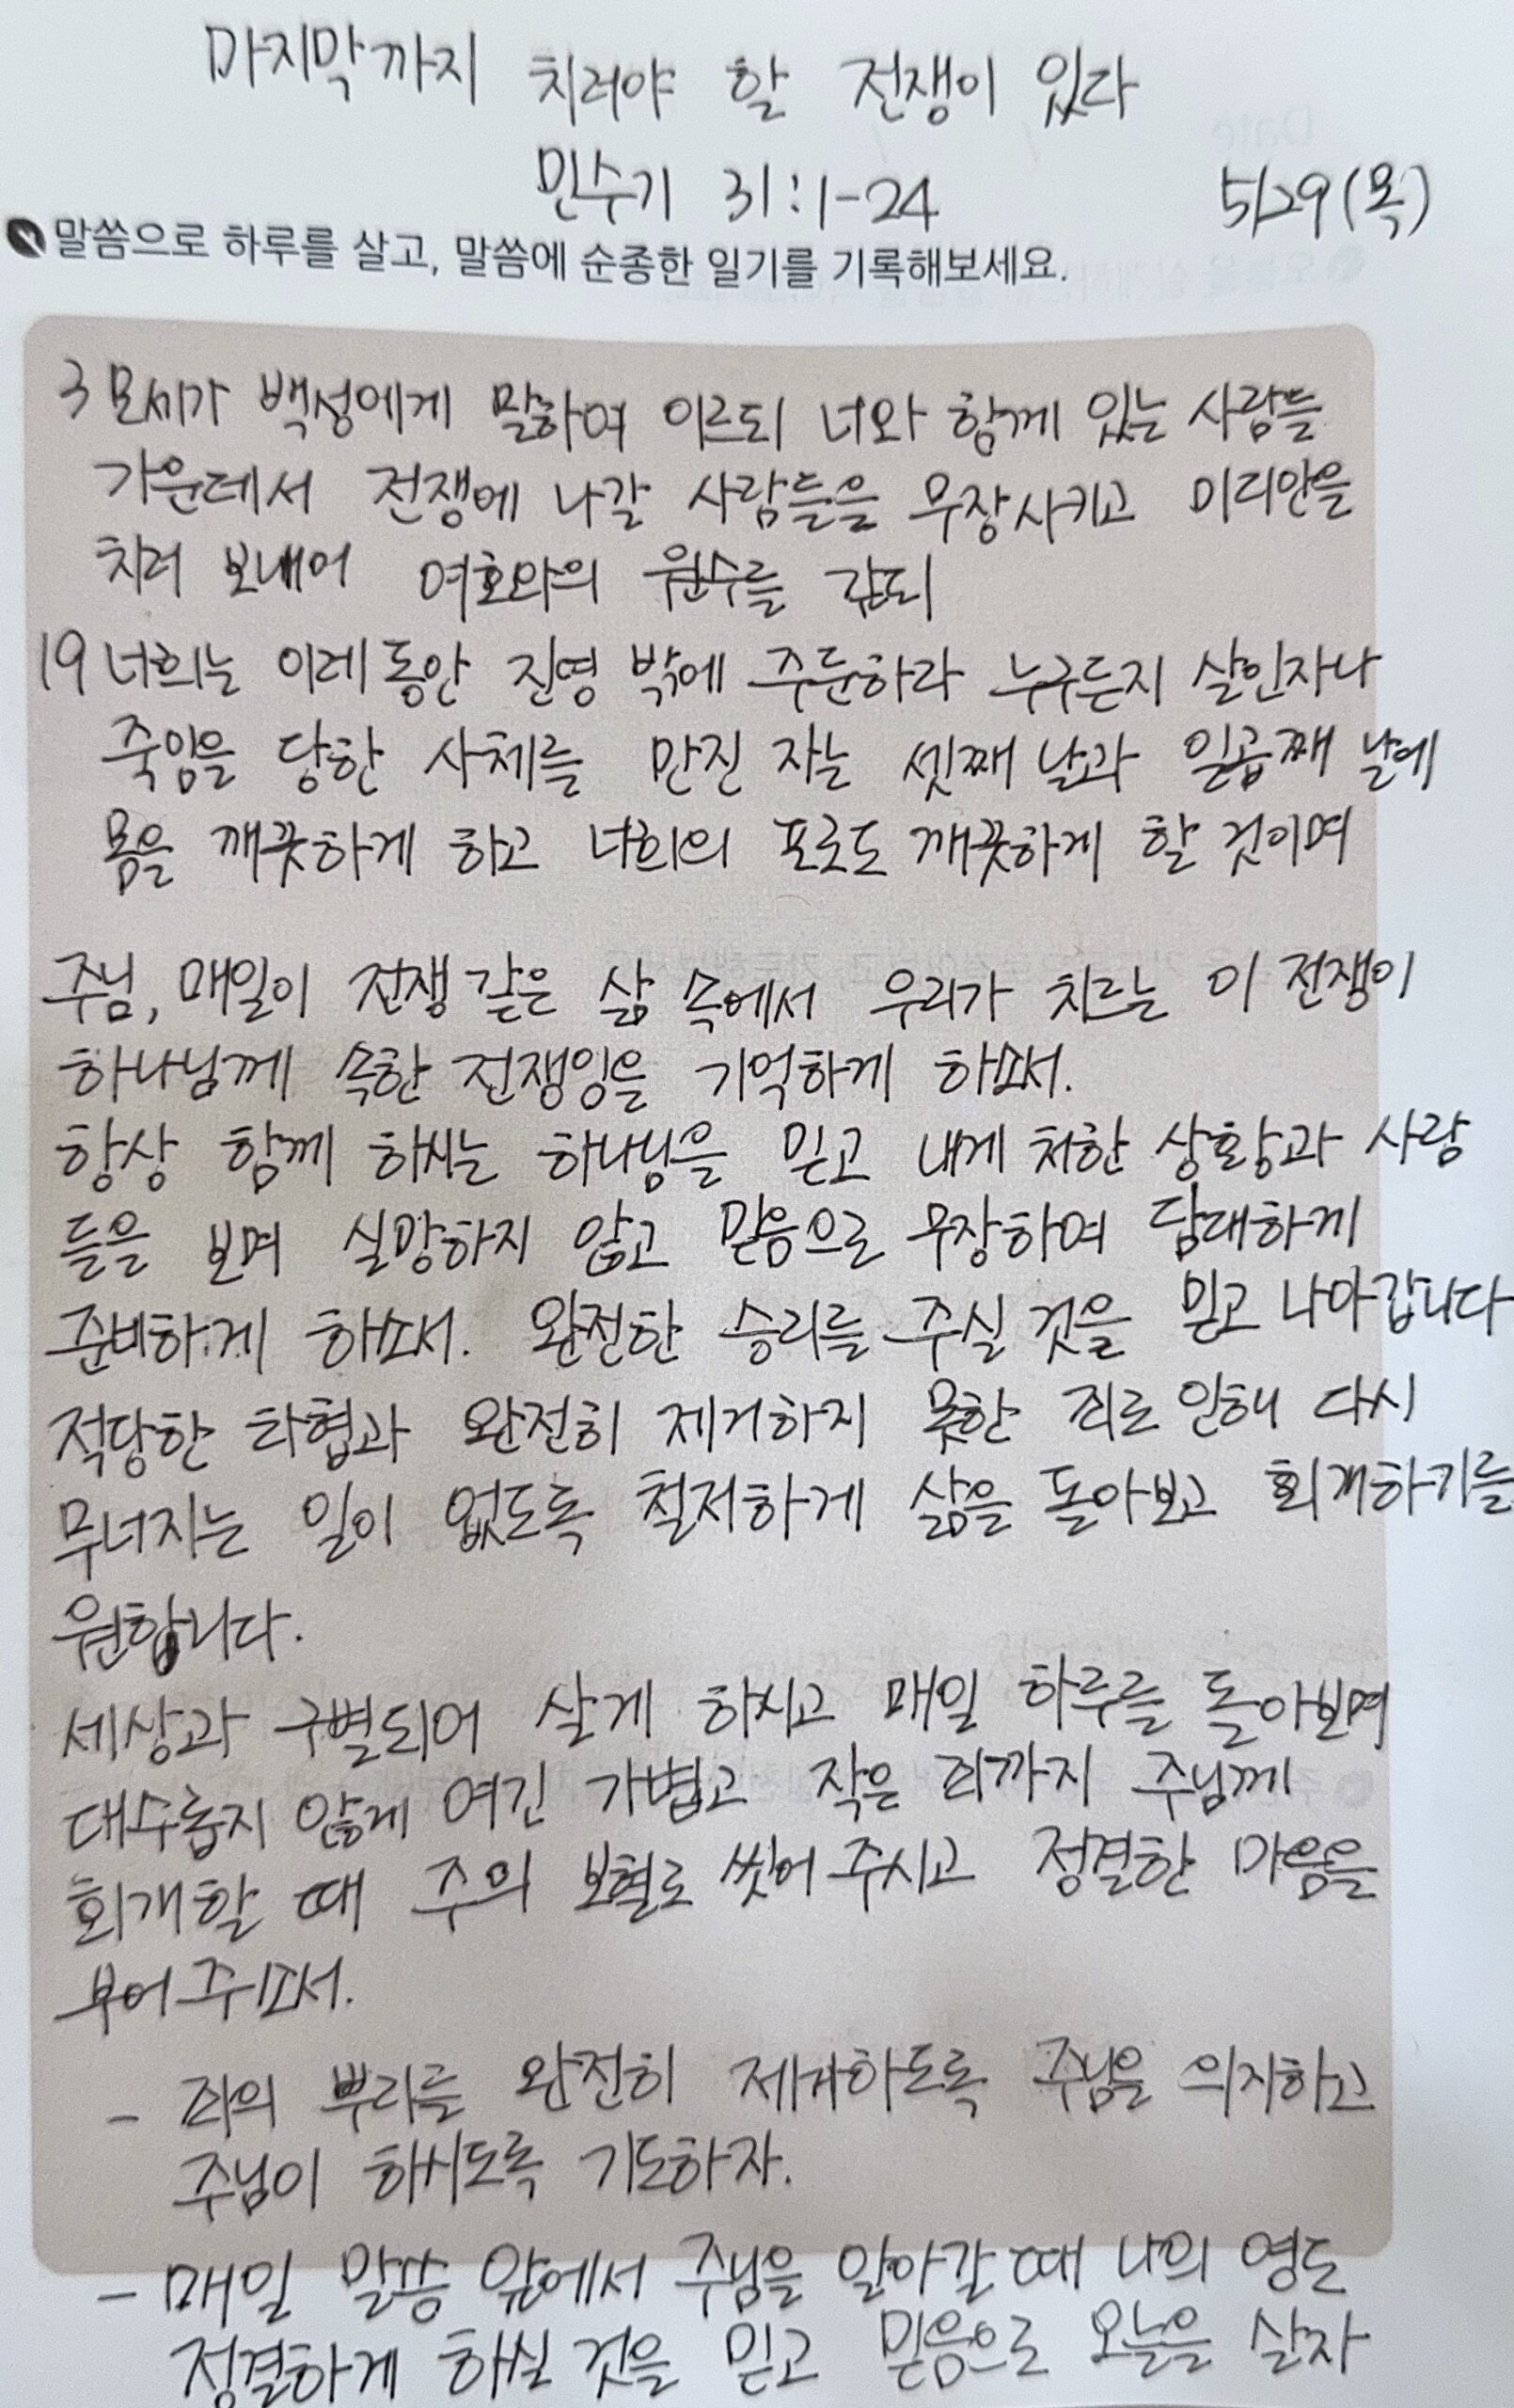 마지막까지 치러야 할 전쟁이 있다
민수기 31:1-24 5/29(목)
말씀으로 하루를 살고, 말씀에 순종한 일기를 기록해보세요.
3 모세가 백성에게 말하여 이르되 너와 함께 있는 사람들
가운데서 전쟁에 나갈 사람들을 무장시키고 미디안을
치러 보내어 여호와의 원수를 갚되
19 너희는 이레 동안 진영 밖에 주둔하라 누구든지 살인자나
죽임을 당한 사체를 만진 자는 셋째 날과 일곱째 날에
몸을 깨끗하게 하고 너희의 포로도 깨끗하게 할 것이며
주님, 매일이 전쟁 같은 삶 속에서 우리가 치르는 이 전쟁이
하나님께 속한 전쟁임을 기억하게 하소서.
항상 함께 하시는 하나님을 믿고 내게 처한 상황과 사람
들을 보며 실망하지 않고 믿음으로 무장하여 담대하게
준비하게 하소서. 완전한 승리를 주실 것을 믿고 나아갑니다
적당한 타협과 완전히 제거하지 못한 죄로 인해 다시
무너지는 일이 없도록 철저하게 삶을 돌아보고 회개하기를
원합니다.
세상과 구별되어 살게 하시고 매일 하루를 돌아보며
대수롭지 않게 여긴 가볍고 작은 죄까지 주님께
회개할 때 주의 보혈로 씻어 주시고 정결한 마음을
부어 주소서.
- 죄의 뿌리를 완전히 제거하도록 주님을 의지하고
주님이 하시도록 기도하자.
- 매일 말씀 앞에서 주님을 알아갈 때 나의 영도
정결하게 하실 것을 믿고 믿음으로 오늘을 살자